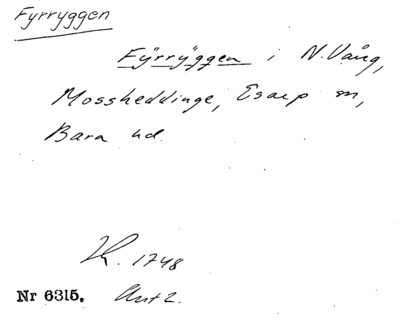 Fyrryggen
Fÿrrÿggen i N. Vång,
Mossheddinge, Esarp sn,
Bara hd.
K. 1748
Nr 6315. Akt 2.